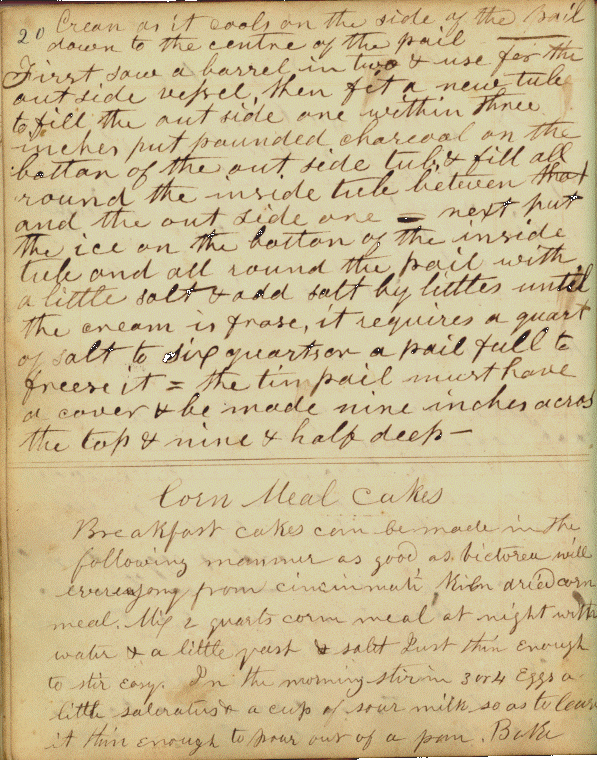 20 Cream as it cools on the side of the Pail
down to the centre of the pail
First saw a barrel in two & use for the
outside vessel, then fit a new tub
to fill the out side one within three
inches put pounded charcoal on the
bottan of the out side tub & fill all
round the inside tub between that
and the out side one = next put
the ice on the bottan of the inside
tub and all round the pail with
a little salt & add salt by littles until
the cream is frose, it requires a quart
of salt to six quarts or a pail full to
freese it = the tin pail must have
a cover & be made nine inches acros
the top & nine & half deep —
Corn Meal Cakes
Breakfast cakes can be made in the
following manner as good as Victorea will
ever enjoy from cincinnati Kiln dried corn
meal. Mix 2 quarts corn meal at night with
water & a little yast & salt Just thin enough
to stir easy. In the morning stir in 3 or 4 Eggs a
little saleratus & a cup of sour milk so as to leave
it thin enough to pour out of a pan. Bake